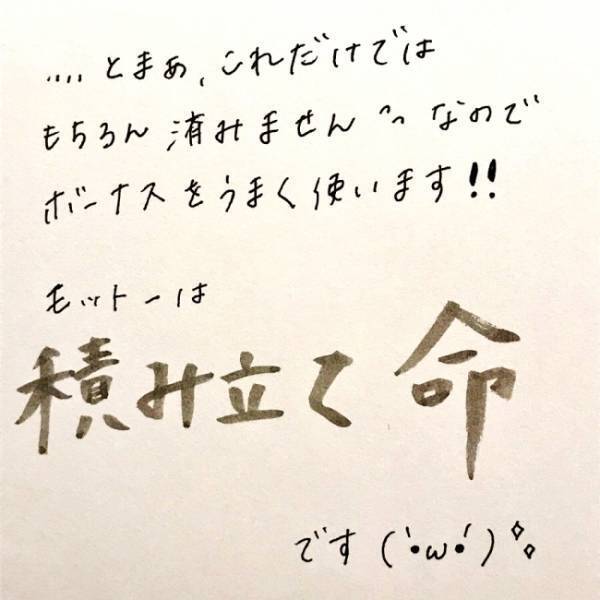 ....とまぁ、これだけでは
もちろん済みません^^なので
ボーナスをうまく使います!!
モットーは
積み立て命
です(`•ω•´)✧